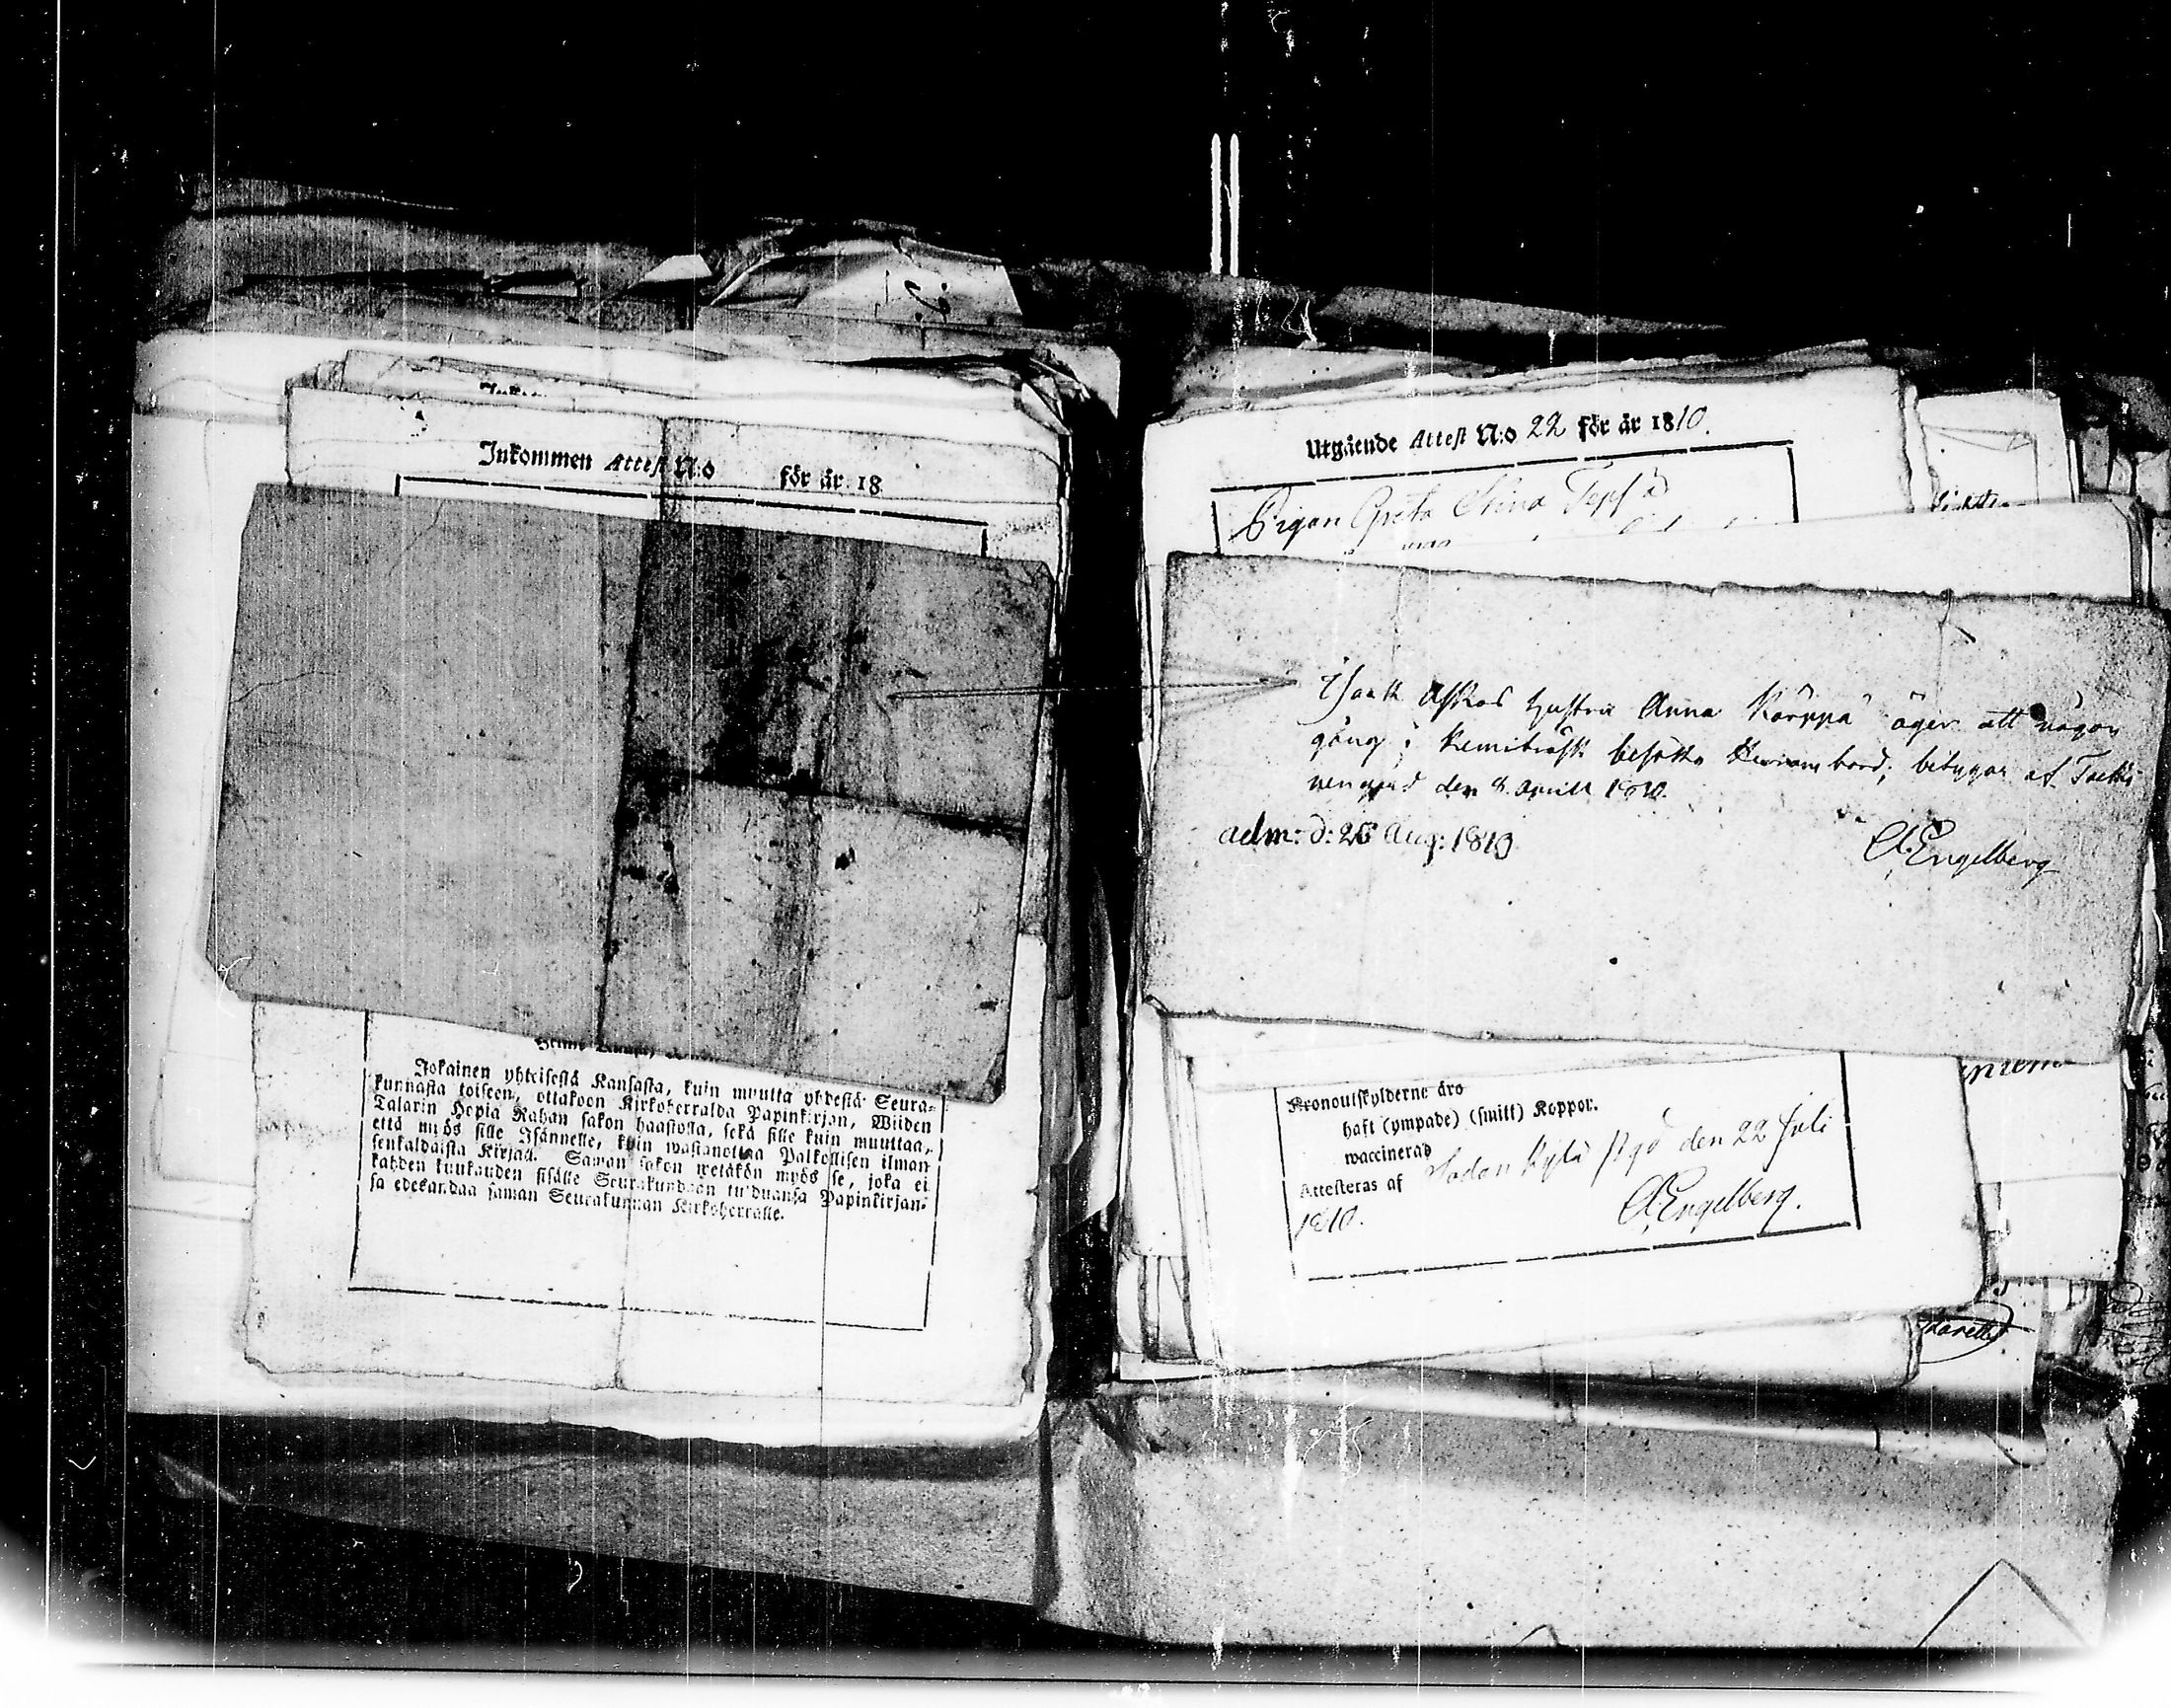 Inkommen Attest N:o för år 18
Jokainen yhteisestä Kansasta, kuin muutta yhdestä Seura-
kunnasta toiseen, ottakoon Kirkoherralda Papinkirjan, Wiiden
Talarin Hopia Rahan sakon haastolla, sekä sille kuin muuttaa,
että myös sille Isännelle, kuin wastanottaa Palkollisen ilman
senkaldaista Kirjaa. Saman sakon wetäkön myös se, joka ei
kahden kuukauden sisälle Seurakundaan tulduansa Papinkirjan-
sa edesandaa saman Seurakunnan Kirkoherralle.
Utgående Attest N:o 22 för år 1810.
Pigan Greta Stina
Isaak hustru Anna Körppä äger att någon
gång i Kemiträsk besöka Herrans bord; betygar af
den 8 April 1810.
adm: d: 26 Aug: 1810
A:Engelberg
Kronoutskylderne äro
haft (ympade) (smitt) Koppor.
waccinerad
Attesteras af Sodankylä pgd den 22 Juli
1810.
A:Engelberg.